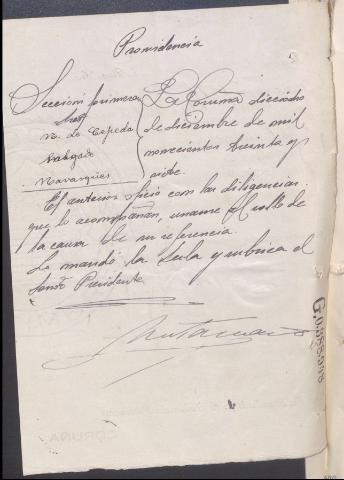 Providencia
Sección primera
Sres
N. de Cepeda
Salgado
Navarques
La Coruña dieciocho
de diciembre de mil
novecientos treinta y
siete.
El anterior oficio con las diligencias
que lo acompañan, unanse al rollo de
la causa de su referencia.
Lo mandó la Sala y rubrica el
Señor Presidente
CORUÑA